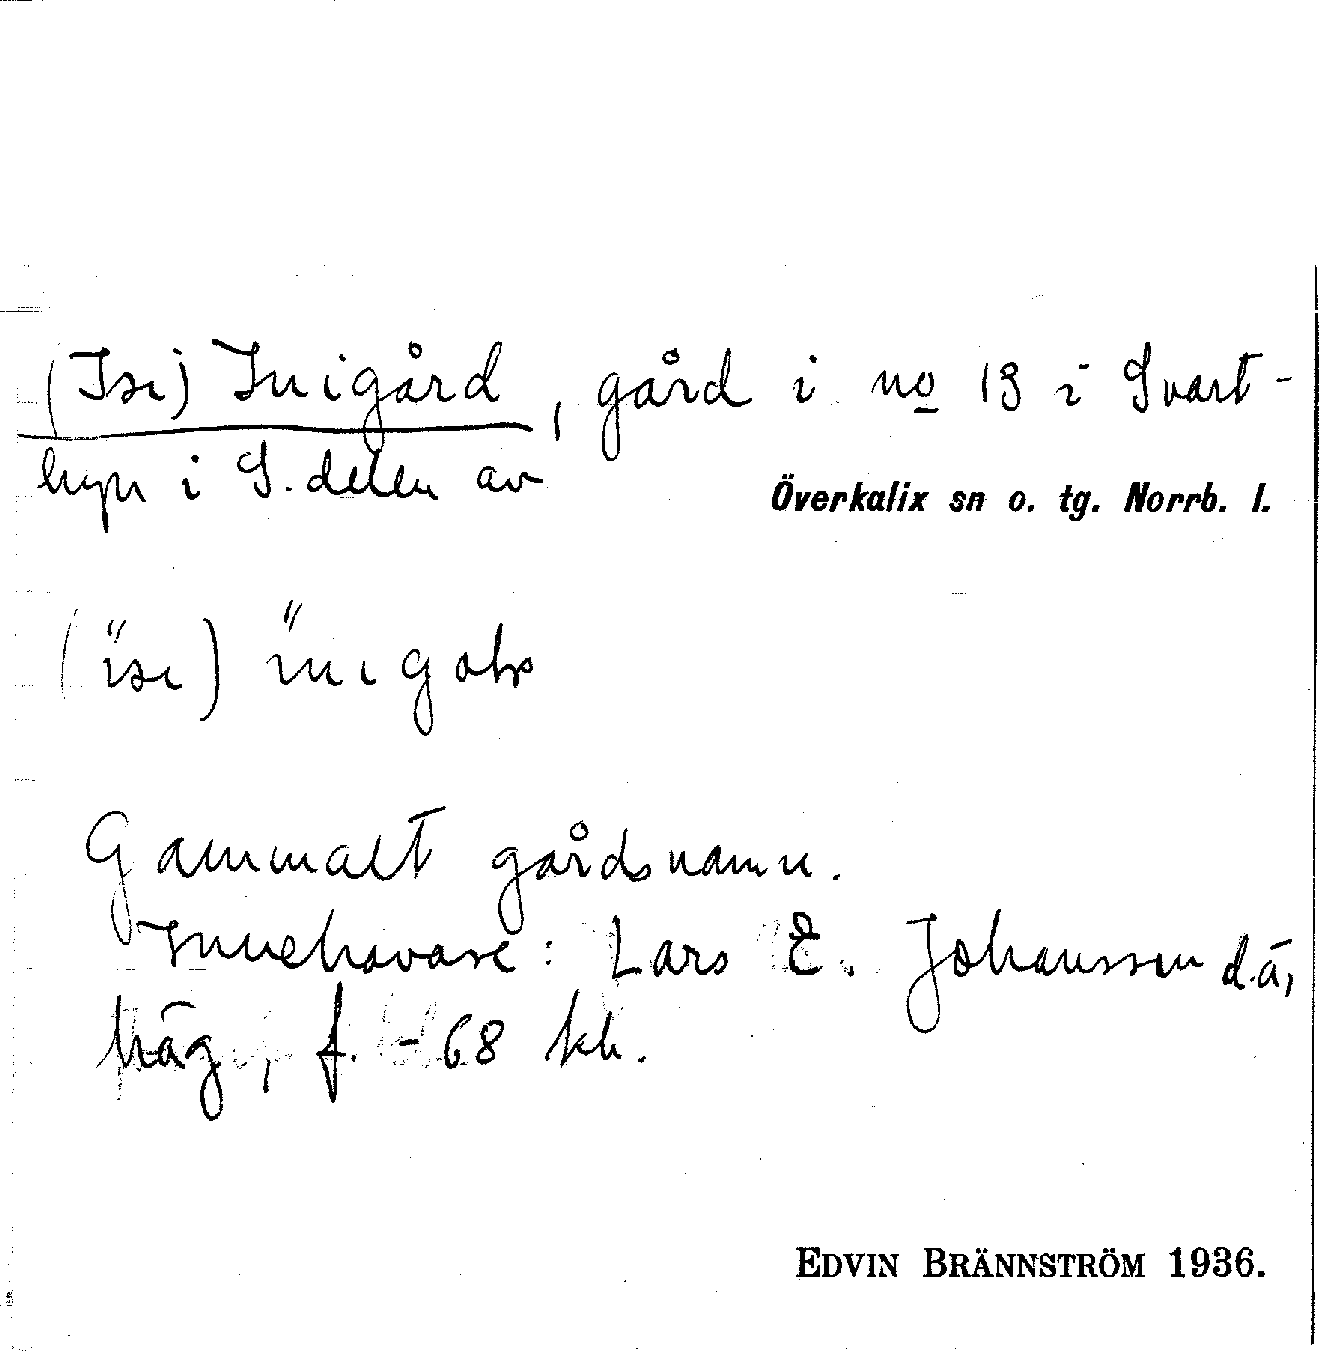 (Isi) Inigård, gård i no 13 i Svart-
byn i S. delen av
Överkalix sn o. tg. Norrb. l.
Gammalt gårdsnamn.
Innehavare: Lars E. Johansson d.ä,
häg, f. -68 kh.
EDVIN BRÄNNSTRÖM 1936.